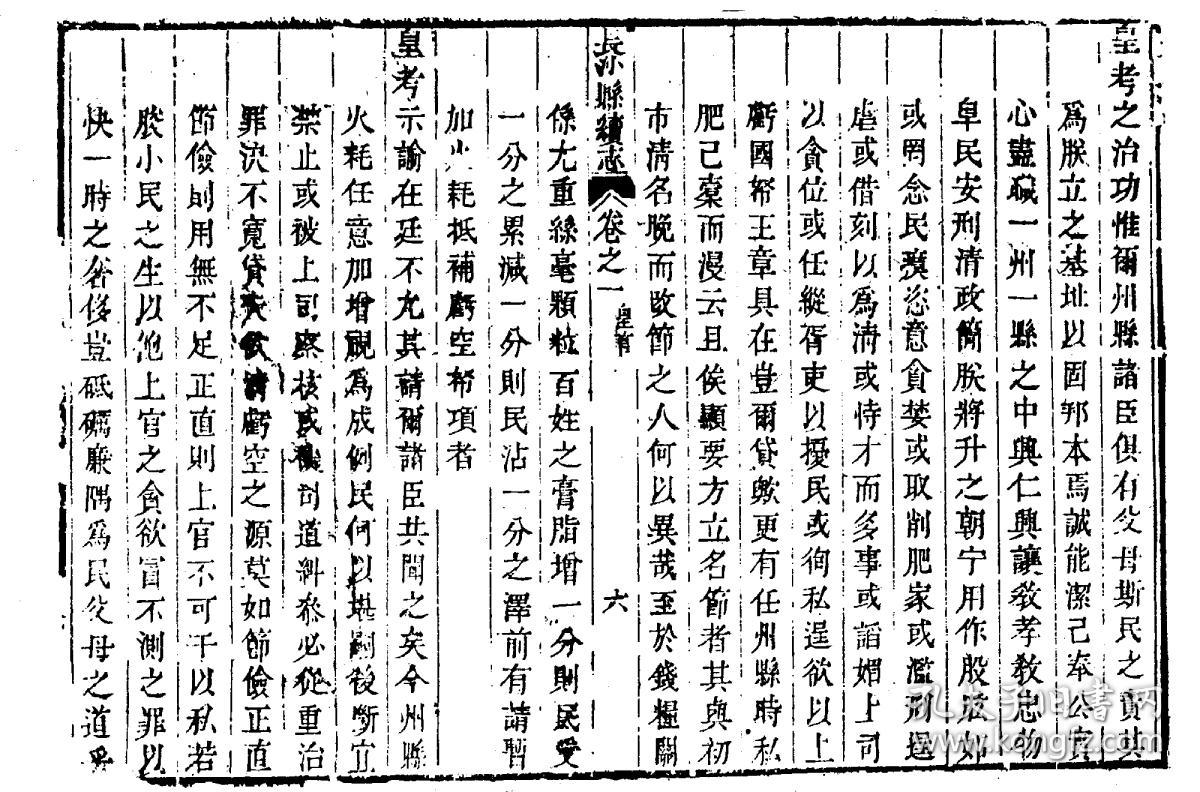 皇考之治功惟爾州縣諸臣俱有父母斯民之責其
為朕立之基址以固邦本焉誠能潔己奉公實
心盡職一州一縣之中興仁興讓教孝教忠物
阜民安刑清政簡朕將升之朝宁用作股肱如
或罔念民瘼恣意貪婪或取削肥家或濫刑逞
虐或借刻以為清或恃才而多事或謟媚上司
以貪位或任縱胥吏以擾民或徇私逞欲以上
虧國帑王章具在豈爾貸歟更有任州縣時私
肥己槖而漫云且俟顯要方立名節者其與初
市清名晚而改節之人何以異哉至於錢糧關
長縣續志 卷之一 六
係尤重絲毫顆粒百姓之膏脂增一分則民受
一分之累減一分則民沾一分之澤前有請暫
加火耗抵補虧空帑項者
皇考示諭在廷不允其請爾諸臣共聞之矣今州縣
火耗任意加增視為成例民何以堪嗣後斷宜
禁止或被上司察核或機司道糾叅必從重治
罪決不寬貸夫欲清虧空之源莫如節儉正直
節儉則用無不足正直則上官不可干以私若
朘小民之生以飽上官之貪欲冒不測之罪以
快一時之奢侈豈砥礪廉隅為民父母之道乎
孔夫子旧書网
www.kongfz.com